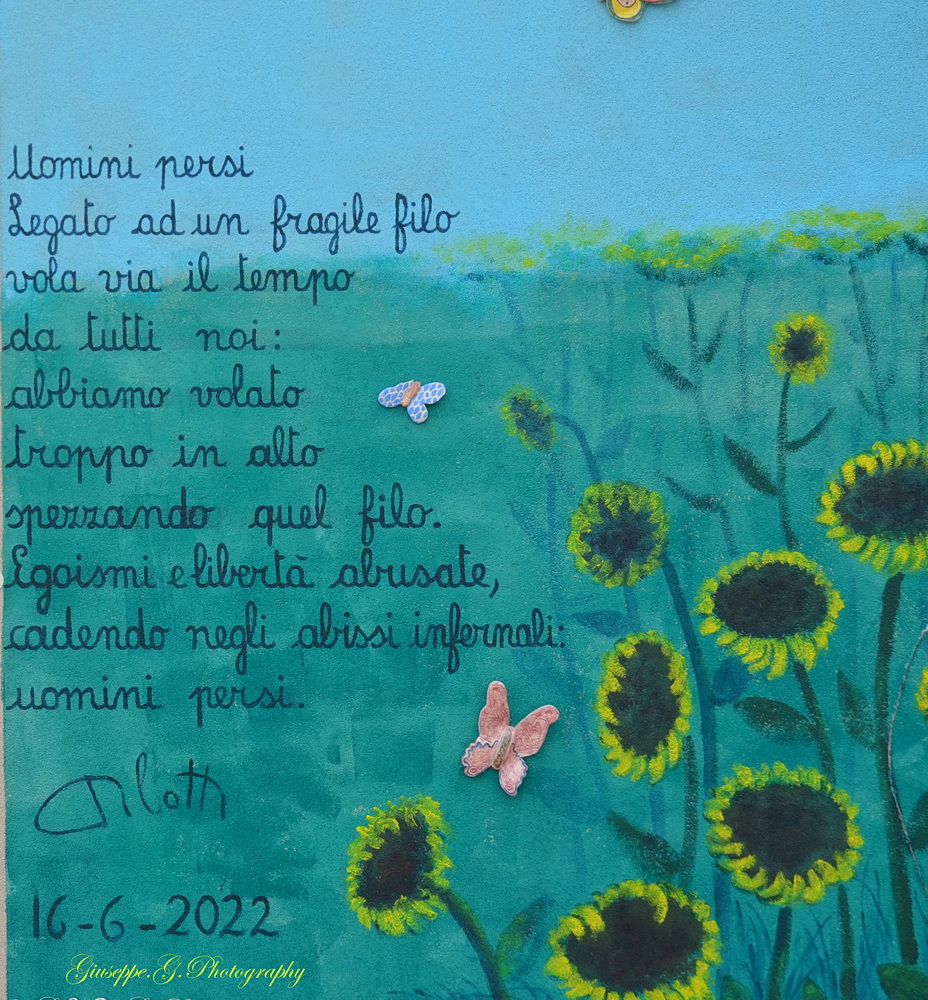 Uomini persi
Legato ad un fragile filo
vola via il tempo
da tutti noi:
abbiamo volato
troppo in alto
spezzando quel filo.
Egoismi e libertà abusate,
cadendo negli abissi infernali:
uomini persi.
16-6-2022
Giuseppe.G.Photography